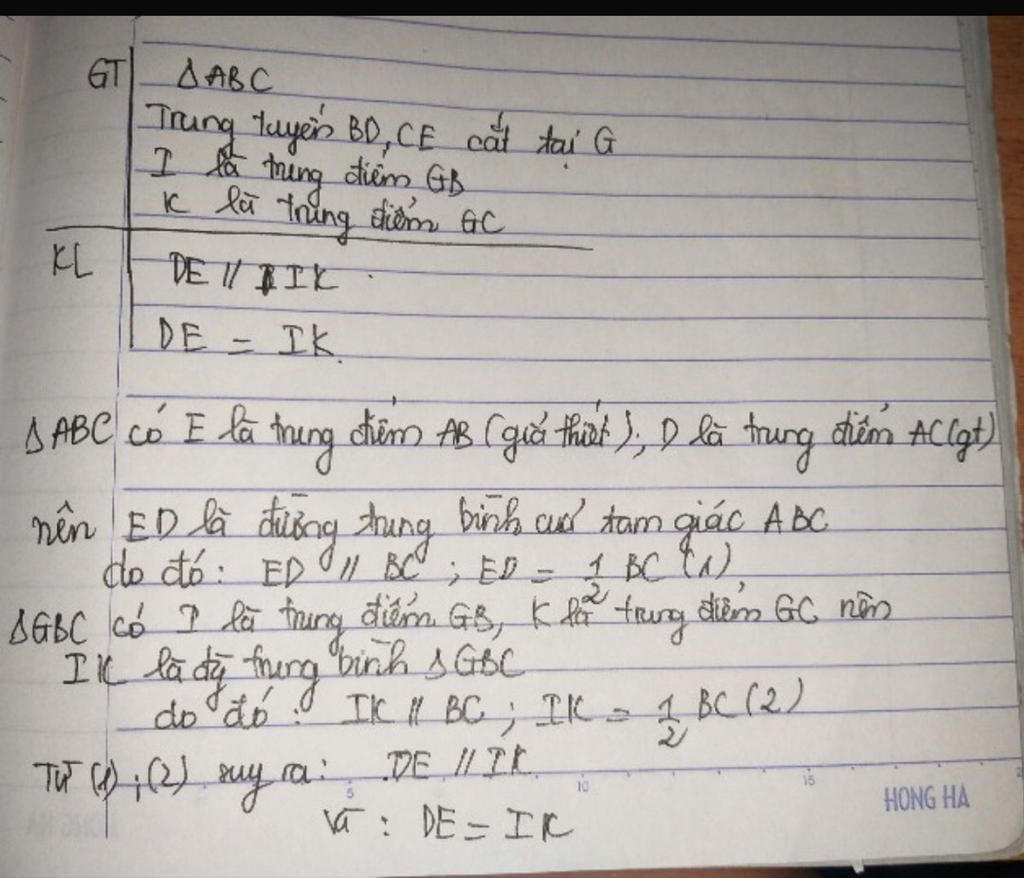 GT ΔABC
Trung tuyến BD, CE cắt tại G
I là trung điểm GB
K là trung điểm GC
KL DE // IK
DE = IK.
ΔABC có E là trung điểm AB (giả thiết); D là trung điểm AC (gt)
nên ED là đường trung bình của tam giác ABC
do đó: ED // BC ; ED = 1/2 BC (1)
ΔGBC có I là trung điểm GB, K là trung điểm GC nên
IK là đg trung bình ΔGBC
do đó: IK // BC ; IK = 1/2 BC (2)
Từ (1) ; (2) suy ra: DE // IK
Và : DE = IK
5 10 15
HONG HA